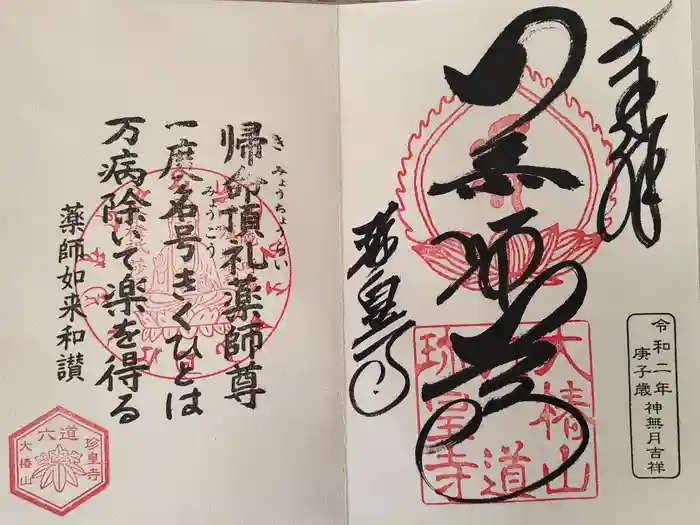 奉拝
令和二年
庚子歳 神無月吉祥
大椿山
六道
珍皇寺
珍皇寺
き みょうちょうらい
帰命頂礼薬師尊
みうこう
一度名号きくひとは
万病除いて楽を得る
薬師如来和讃
六道
珍皇寺
大椿山